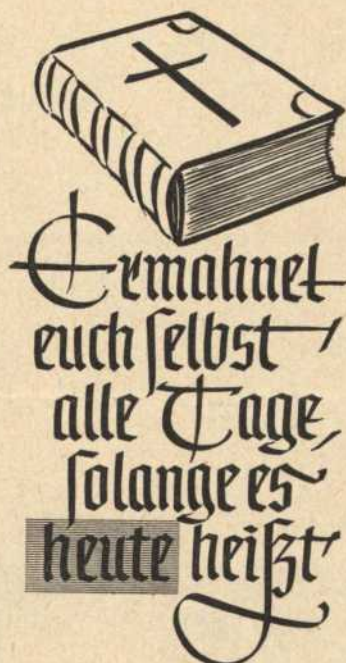 Ermahnet
euch selbst
alle Tage,
solange es
heute heißt